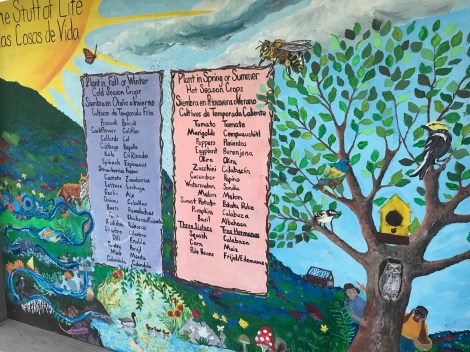 The Stuff of Life
Las Cosas de Vida
Plant in Fall or Winter
Cold Season Crops
Siembra en Otoño o Invierno
Cultivos de Temporada Fría
Broccoli Brócoli
Cauliflower Coliflor
Collards Col
Cabbage Repollo
Kale Col Rizada
Spinach Espinacas
Strawberries Fresas
Carrots Zanahorias
Lettuce Lechuga
Onions Cebollas
Dill Eneldo
Parsley Perejil
Mint Menta
Plant in Spring or Summer
Hot Season Crops
Siembra en Primavera o Verano
Cultivos de Temporada Caliente
Tomato Tomate
Marigolds Cempauchitl
Peppers Pimientos
Eggplant Berenjena
Okra Okra
Zucchini Calabacín
Cucumber Pepino
Watermelon Sandía
Melon Melón
Sweet Potato Batata Dulce
Pumpkin Calabaza
Basil Albahaca
Three Sisters Tres Hermanas
Squash Calabaza
Corn Maíz
Pole Beans Frijol/Edamame